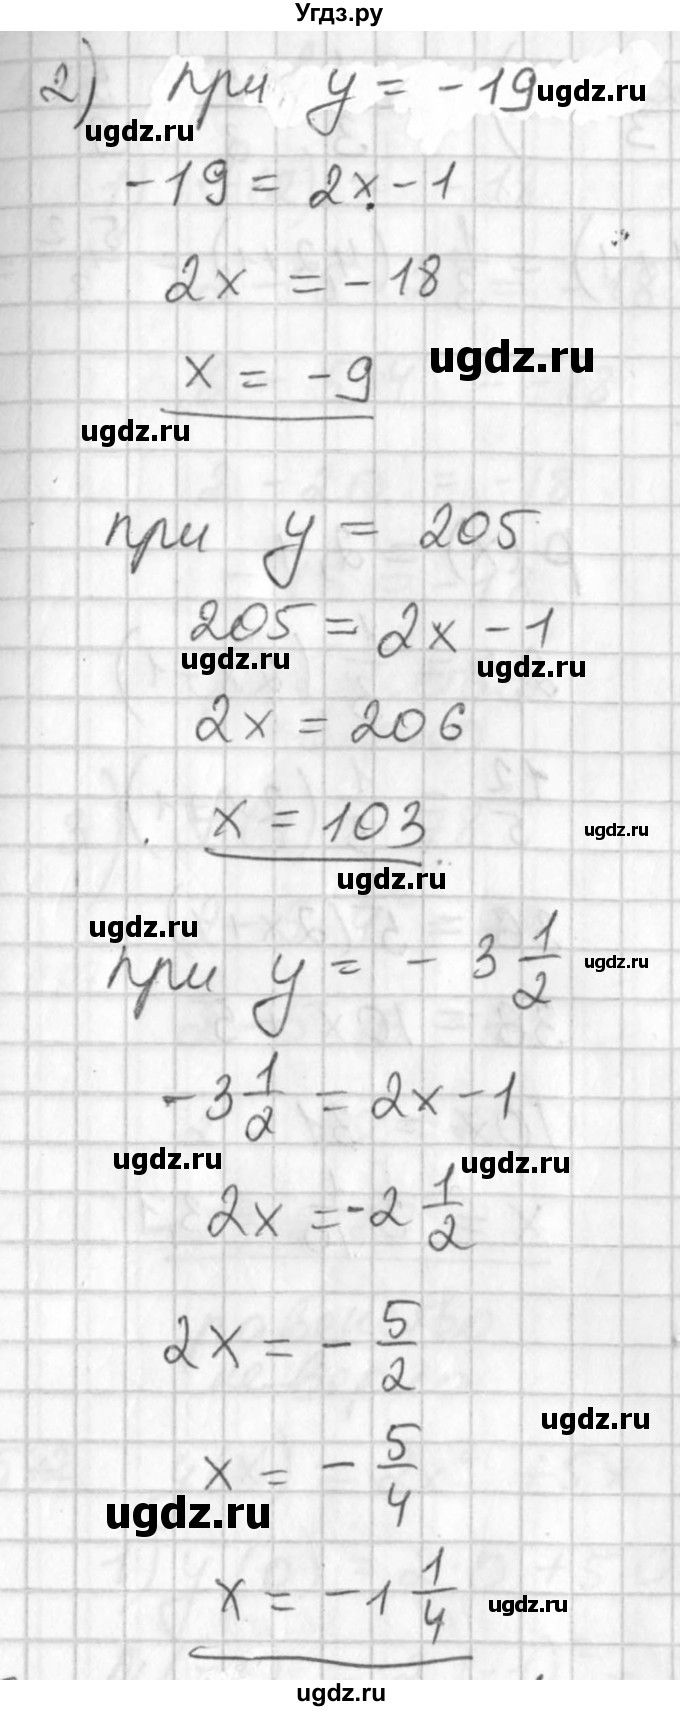 Угдз.ру
2) при y = -19 ugdz.ru
ugdz.ru
-19 = 2x - 1
2x = -18
ugdz.ru
x = -9
ugdz.ru
при y = 205
205 = 2x - 1
ugdz.ru ugdz.ru
2x = 206
x = 103 ugdz.ru
ugdz.ru
ugdz.ru
при y = - 3 1/2 ugdz.ru
-3 1/2 = 2x - 1
ugdz.ru ugdz.ru
2x = -2 1/2
2x = - 5/2
ugdz.ru
x = - 5/4
ugdz.ru
x = -1 1/4 ugdz.ru
ugdz.ru